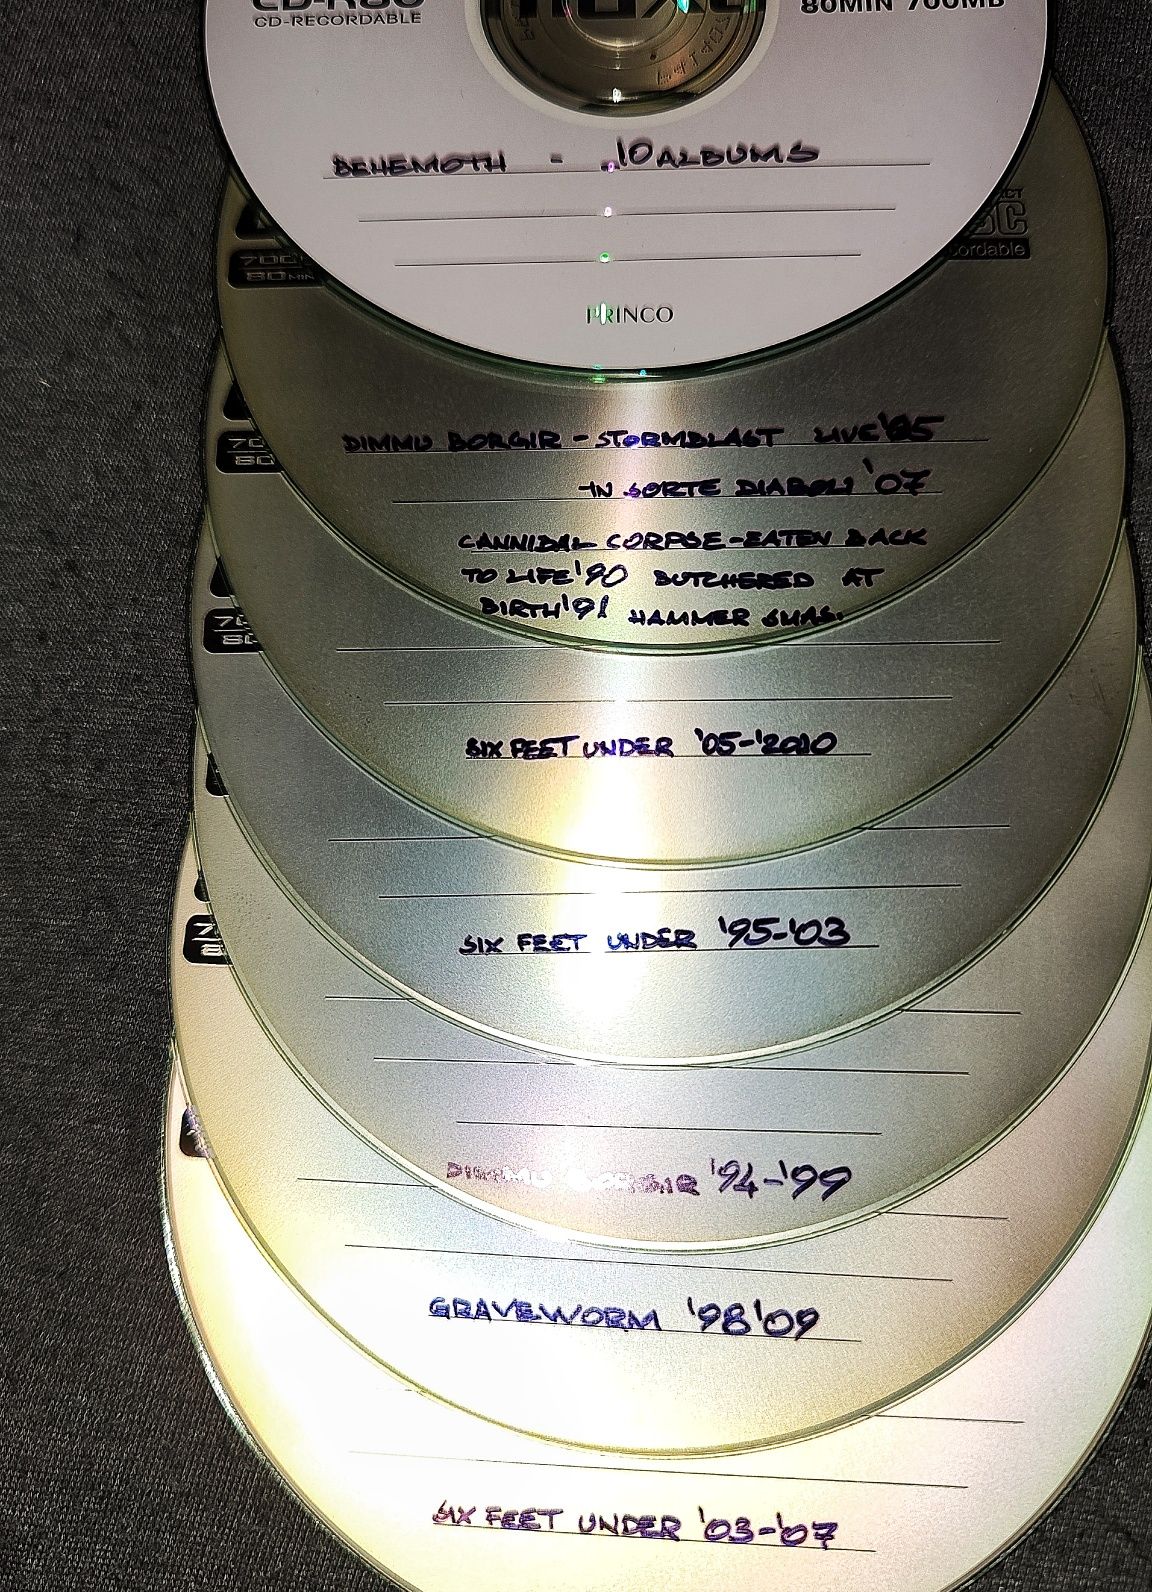 CD-R80
CD-RECORDABLE
80MIN 700MB
BEHEMOTH - 10 ALBUMS
PRINCO
700
80MIN
DIMMU BORGIR - STORMBLAST LIVE '05
IN SORTE DIABOLI '07
CANNIBAL CORPSE - EATEN BACK
TO LIFE '90 BUTCHERED AT
BIRTH '91 HAMMER SMAS.
SIX FEET UNDER '05-'2010
SIX FEET UNDER '95-'03
DIMMU BORGIR '94-'99
GRAVEWORM '98'09
SIX FEET UNDER '03-'07